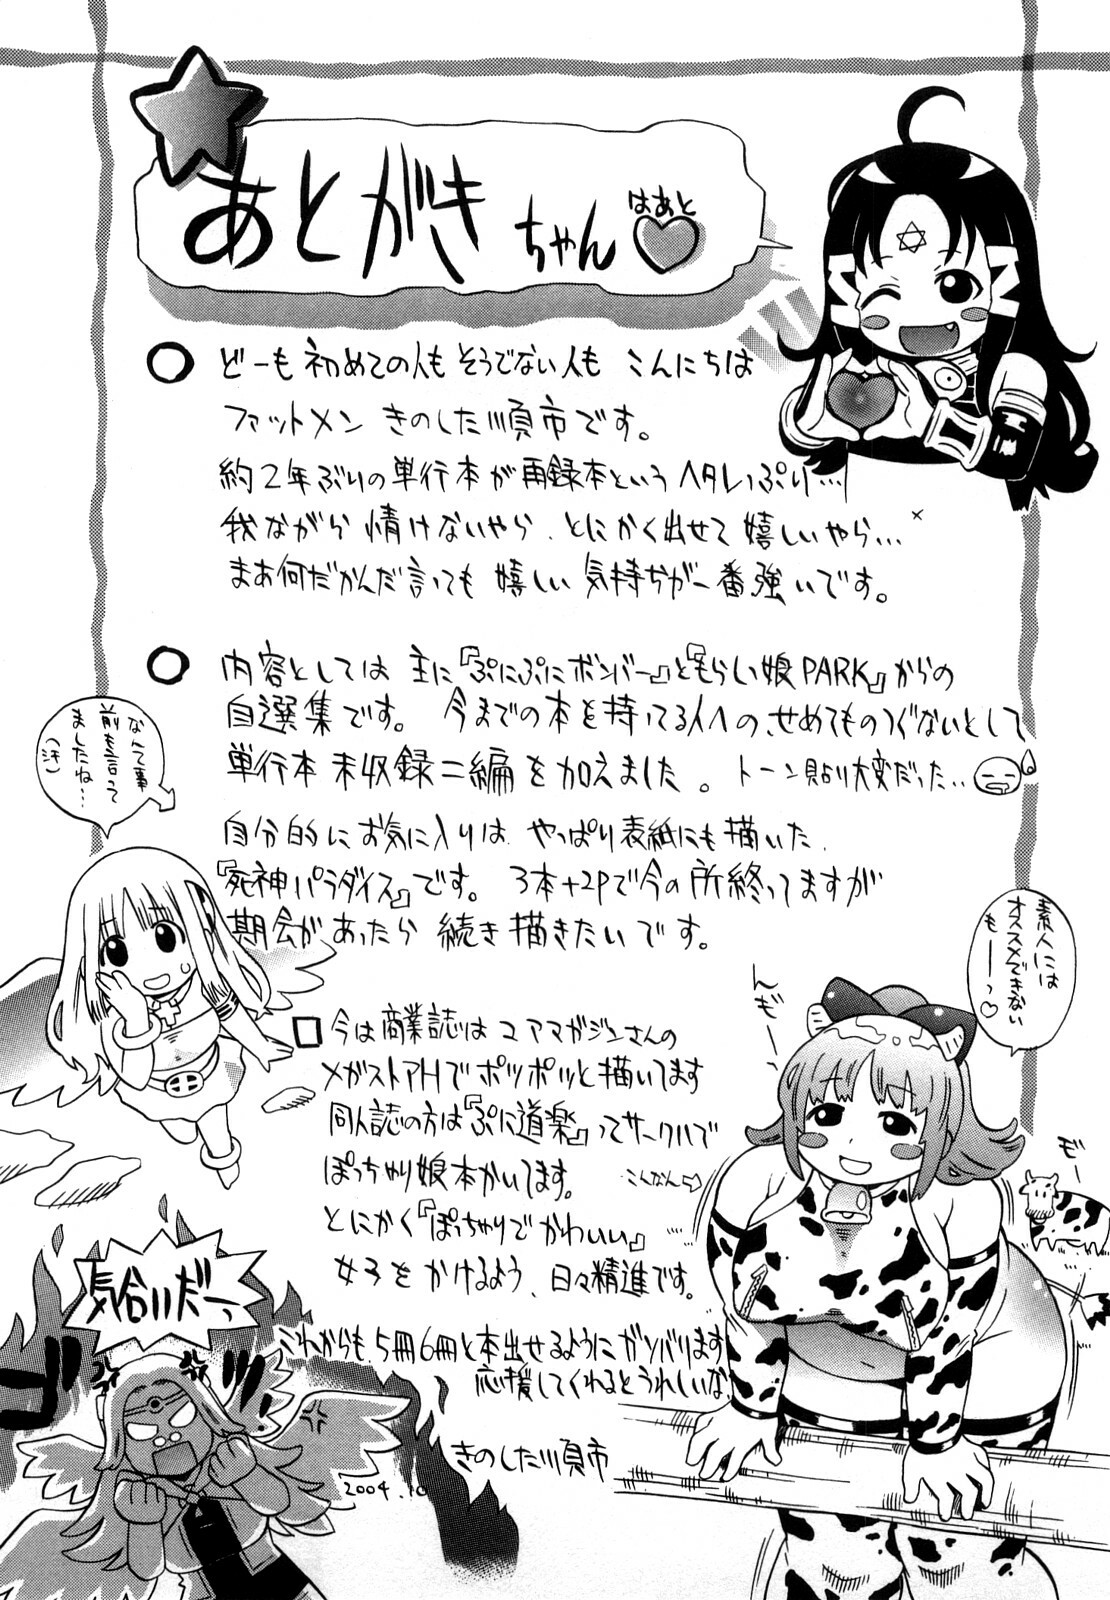 あとがきちゃん はあと
○ どーも 初めての人も そうでない人も こんにちは
ファットメン きのした順市です。
約2年ぶりの単行本が再録本というヘタレっぷり…
我ながら 情けないやら、とにかく出せて 嬉しいやら…
まあ何だかんだ言っても 嬉しい 気持ちが一番強いです。
○ 内容としては 主に『ぷにぷにボンバー』と『もらい娘PARK』からの
自選集です。 今までの本を持ってる人への、せめてものつぐないとして
単行本 未収録二編を加えました。 トーン貼り大変だった…
自分的にお気に入りは、やっぱり表紙にも描いた、
『死神パラダイス』です。 3本+2Pで今の所終ってますが
期会があったら 続き描きたいです。
なんて事
前も言って
ましたね…
(汗)
素人には
オススメできない
もーーっ♡
んぎー
□ 今は商業誌は コアマガジンさんの
メガストアHでポツポツと描いてます
同人誌の方は『ぷに道楽』ってサークルで
ぽっちゃり娘本かいてます。
こんなん⇨
とにかく『ぽっちゃりでかわいい』
女子をかけるよう、日々精進です。
モー
これからも、5冊6冊と本出せるようにガンバります
応援してくれるとうれしいな。
きのした順市
2004.10
気合いだーっ
ゴゴ